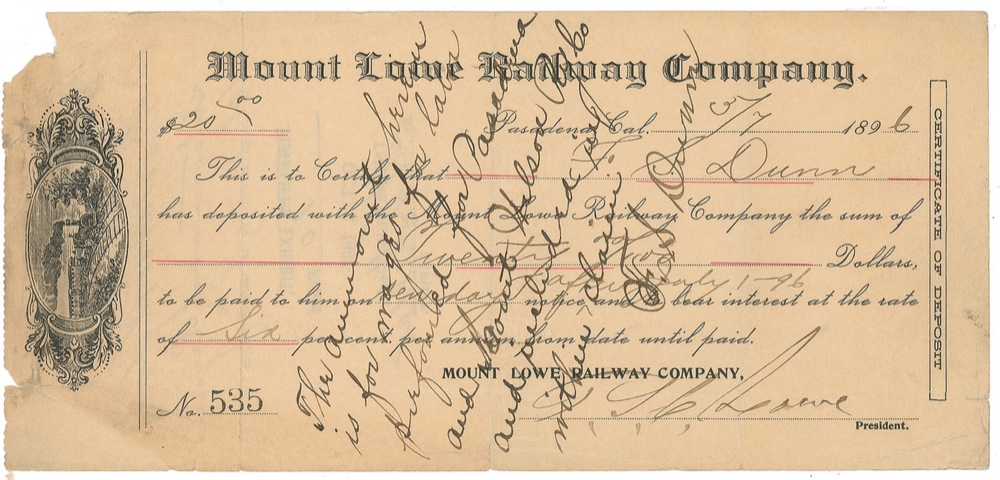 Mount Lowe Railway Company.
$20 00 Pasadena, Cal. 3/7 1896
This is to Certify that Dunn
has deposited with the Mount Lowe Railway Company the sum of
Twenty Dollars,
to be paid to him on days notice after July 1-96 and bear interest at the rate
of Six per cent. per annum from date until paid.
MOUNT LOWE RAILWAY COMPANY,
Lowe
President.
No. 535
CERTIFICATE OF DEPOSIT
The ammount hereon
is for wages for labor
preformed for Pasadena
and Mount Wilson Co
and included in my
within claim
Dunn